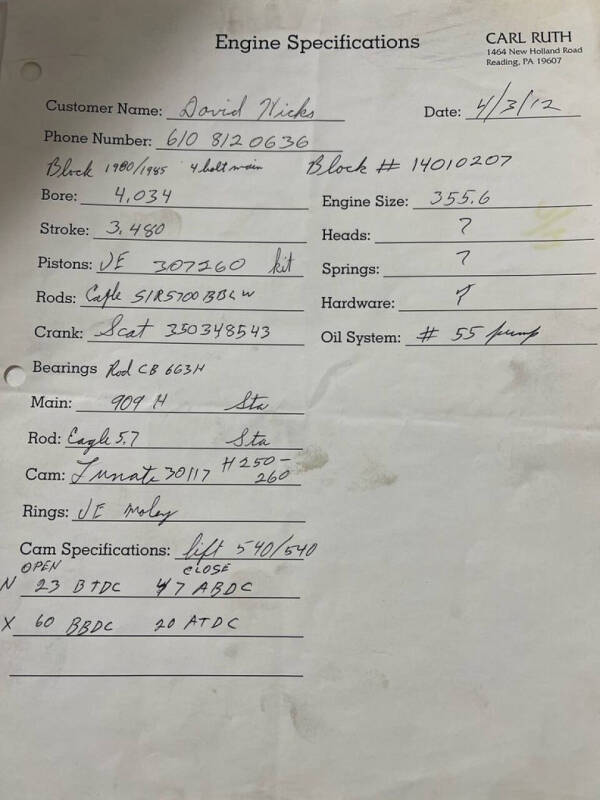 Engine Specifications
CARL RUTH
1464 New Holland Road
Reading, PA 19607
Customer Name: David Hicks
Date: 4/3/12
Phone Number: 610 812 0636
Block 1980/1985 4 bolt main Block # 14010207
Bore: 4.034
Engine Size: 355.6
Stroke: 3.480
Heads: ?
Pistons: JE 307260 kit
Springs: ?
Rods: SIR5700BBLW
Hardware: ?
Crank: Scat 350348543
Oil System: # 55 pump
Bearings Rod CB 663H
Main: 909 H Sta
Rod: Eagle 5.7 Sta
Cam: Lunate 30117 H250-
260
Rings: JE Moley
Cam Specifications: lift 540/540
OPEN CLOSE
N 23 BTDC 47 ABDC
X 60 BBDC 20 ATDC